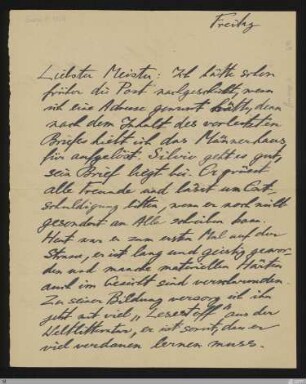 Freitag
Liebster Meister: Ich hätte schon
früher die Post nachgeschickt, wenn
ich eine Adresse gewusst hätte, denn
nach dem Inhalt des vorletzten
Briefes hielt ich das Männerhaus
für aufgelöst. Silvio geht es gut,
sein Brief liegt bei. Er grüsst
alle Freunde und lässt um Ent-
schuldigung bitten, wenn er noch nicht
gesondert an Alle schreiben kann.
Heut war er zum ersten Mal auf der
Strasse, er ist lang und geistig gewor-
den und manche materiellen Härten
auch im Gesicht sind verschwunden.
Zu seiner Bildung versorg ich ihn
jetzt mit viel „Lesestoff" aus der
Weltlitteratur, er ist soweit, dass er
viel verdauen lernen muss.